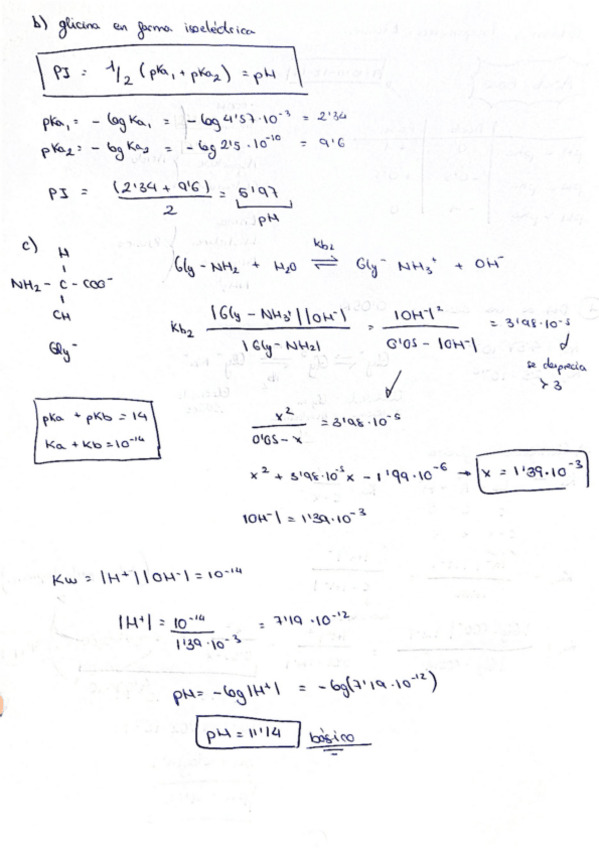 b) glicina en forma isoeléctrica
PI = 1/2 (pKa₁ + pKa₂) = pH
pKa₁ = - log Ka₁ = - log 4'57·10⁻³ = 2'34
pKa₂ = - log Ka₂ = - log 2'5·10⁻¹⁰ = 9'6
PI = (2'34 + 9'6) / 2 = 5'97
pH
c)
H
NH₂ - C - COO⁻
CH
Gly⁻
Gly - NH₂ + H₂O ⇌ Gly⁻ NH₃⁺ + OH⁻
Kb₂
Kb₂ |Gly - NH₃⁺||OH⁻| / |Gly - NH₂| = |OH⁻|² / 0'05 - |OH⁻| = 3'98·10⁻⁵
se desprecia
> 3
pKa + pKb = 14
Ka + Kb = 10⁻¹⁴
x² / 0'05 - x = 3'98·10⁻⁵
x² + 3'98·10⁻⁵x - 1'99·10⁻⁶ → x = 1'39·10⁻³
|OH⁻| = 1'39·10⁻³
Kw = |H⁺||OH⁻| = 10⁻¹⁴
|H⁺| = 10⁻¹⁴ / 1'39·10⁻³ = 7'19·10⁻¹²
pH = - log |H⁺| = - log (7'19·10⁻¹²)
pH = 11'14 básico